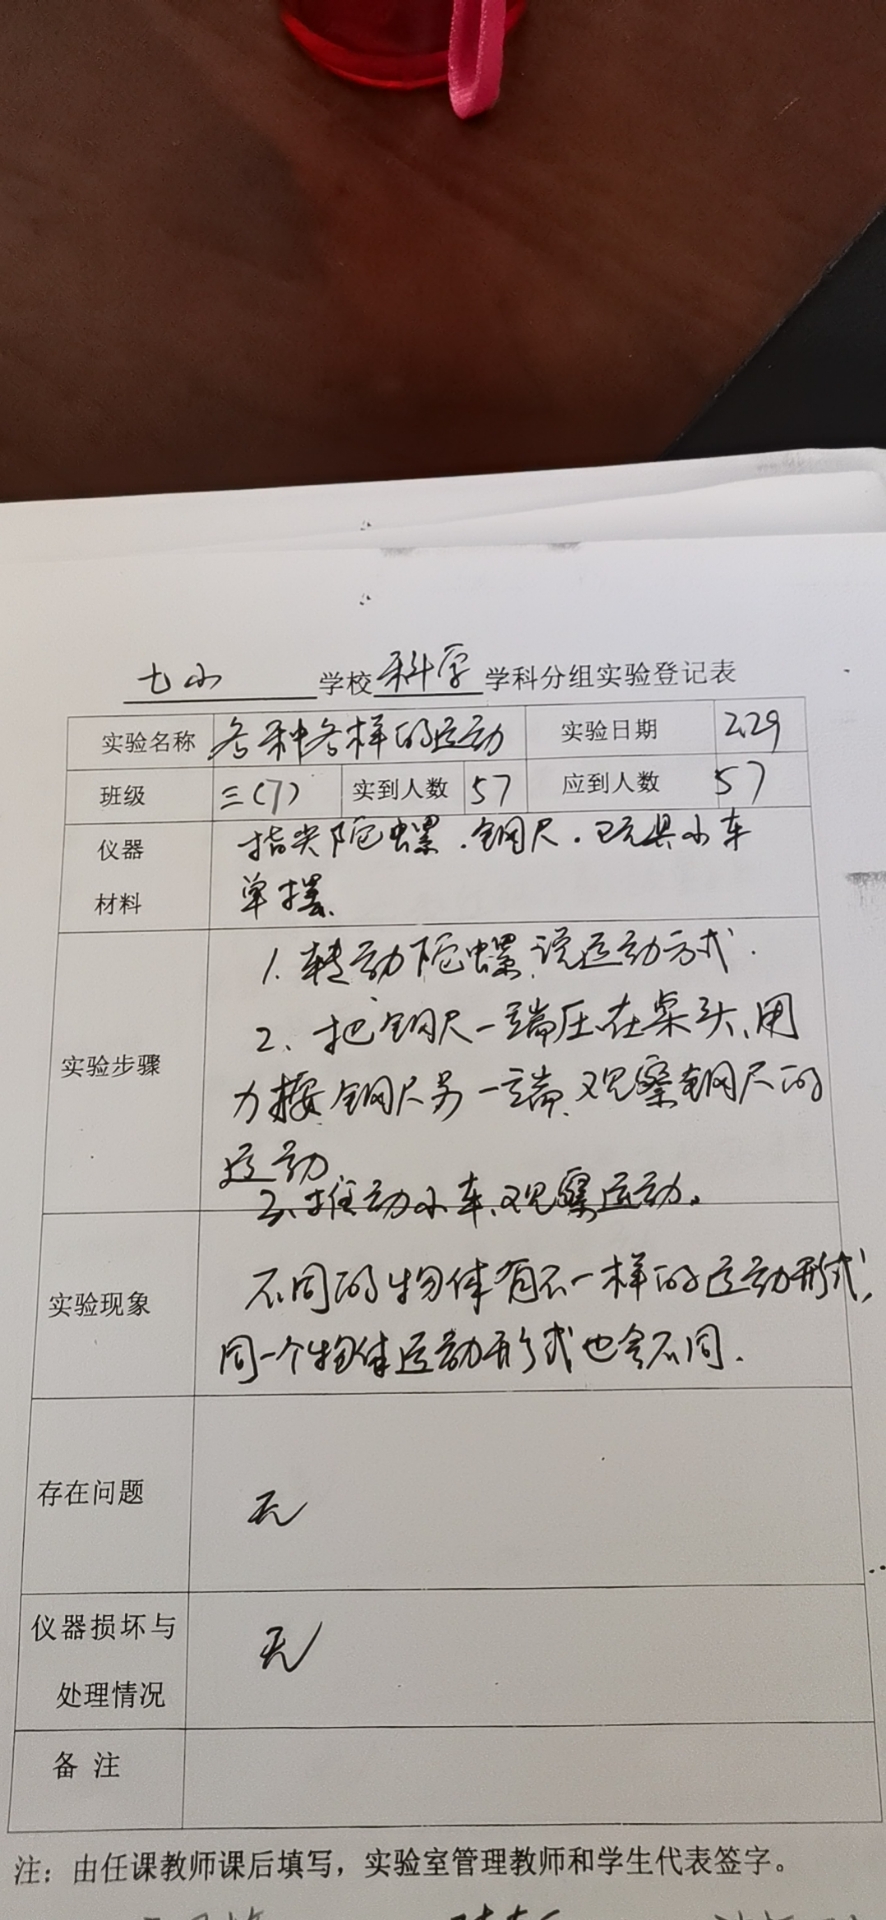 七小 学校 科学 学科分组实验登记表
实验名称 各种各样的运动 实验日期 2.29
班级 三(7) 实到人数 57 应到人数 57
仪器 指尖陀螺.钢尺.玩具小车
材料 单摆.
1. 转动陀螺,说运动方式.
2. 把钢尺一端压在桌头,用
实验步骤 力按钢尺另一端,观察钢尺的
运动
3.推动小车,观察运动。
实验现象 不同的物体有不一样的运动形式,
同一个物体运动形式也会不同.
存在问题 无
仪器损坏与 无
处理情况
备 注
注：由任课教师课后填写，实验室管理教师和学生代表签字。